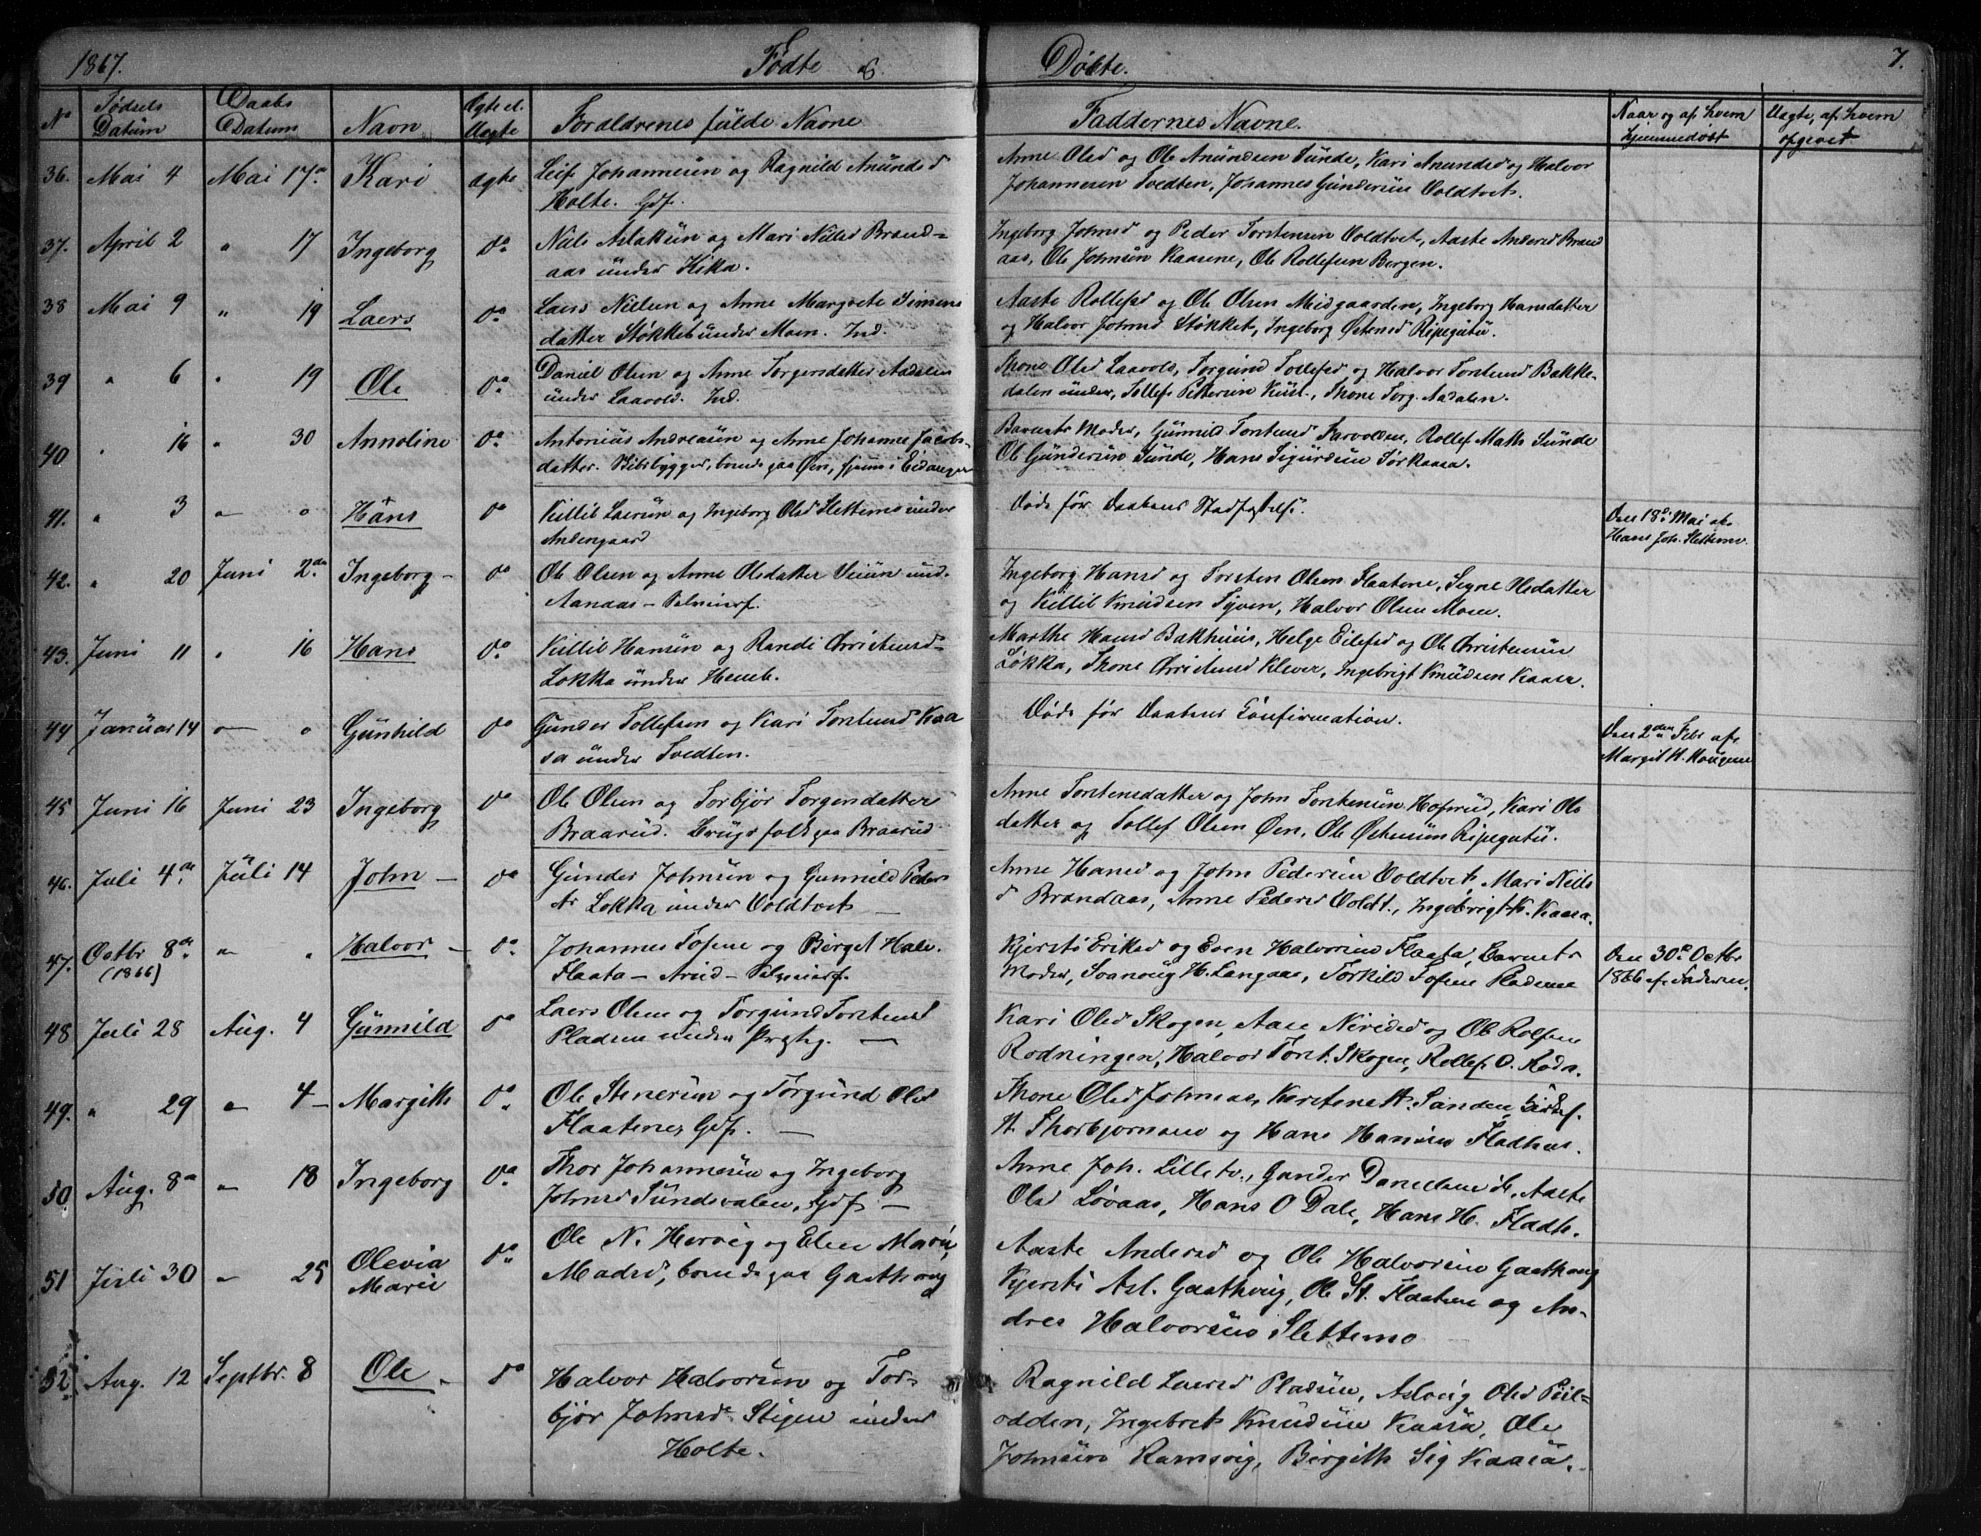 1867. Fødte & Døbte. 7.
No Fødsels Datum Daabs Datum Navn Ægte el. Uægte Forældrenes fulde Navne Faddernes Navne. Naar og af hvem hjemmedøbt Uægte, af hvem opgivet
36. Mai 4 Mai 17de Kari ægte Leif Johannesen og Ragnild Anundsd
Holte. Gdf.
Anne Olsd og Ole Anundsen Sunde, Kari Anundsd og Halvor
Johannesen Tvedten, Johannes Gundersen Voldtvet.
37. April 2 " 17 Ingeborg Do Nils Aslaksen og Mari Nilsd Brand-
aas under Kika.
Ingeborg Johnsd og Peder Torstensen Voldtvet, Aaste Andersd Brand
aas, Ole Johnsen Kaasene, Ole Rollefsen Bergen.
38 Mai 9 " 19 Laers Do Laers Nielsen og Anne Margrete Simens
datter Stokkeb under Moen. Ind.
Aaste Rollefsd og Ole Olsen Midgaarden, Ingeborg Hansdatter
og Halvor Johnsd Stokket, Ingeborg Østensd Ripegutu.
39 " 6 " 19 Ole Do Daniel Olsen og Anne Torgersdatter Aadalen
under Laavold. Ind.
Thone Olsd Laavold, Torgund Tollefsd og Halvor Torstensd Bakke-
dalen under, Tollef Pettersen Kust., Thone Torg. Aadalen.
40 " 16 " 30 Annoline Do Antonius Andreasen og Anne Johanne Jacobs-
datter. Skibsbygger, boende paa Øen, hjem i Eidanger
Barnets Moder, Gunnild Torstensd Farvolden, Rollef Maths Sunde
Ole Gundersen Sunde, Hans Sigurdsen Sørkaasa.
41. " 3 " " Hans Do Killil Laersen og Ingeborg Olsd Slettemo under
Andengaard
Døde før Daabens Stadfæstelse.
Den 18de Mai af
Hans Joh. Slettemo.
42. " 20 Juni 2den Ingeborg - Do Ole Olsen og Anne Olsdatter Veiun und.
Aanaas - Selveierf.
Ingeborg Hansd og Torsten Olsen Flaatene, Signe Olsdatter
og Killil Knudsen Tyven, Halvor Olsen Moen.
43. Juni 11 " 16 Hans Do Killil Hansen og Randi Christensd-
Lokka under Hemb.
Marthe Hansd Bakhuus, Helge Eilefsd og Ole Christensen
Løkka, Thone Christensd Klever, Ingebrigt Knudsen Kaasa.
44 Januar 14 " " Gunhild Do Gunder Tollefsen og Kari Torstensd Kaa
sa under Tvedten.
Døde før Daabens Confirmation.
Den 2den Febr af
Margit H. Haugene
45 Juni 16 Juni 23 Ingeborg Do Ole Olsen og Torbjør Torgersdatter
Braarud. Brugsfolk paa Braarud
Anne Torstensdatter og John Torstensen Hofsrud, Kari Ols
datter og Tollef Olsen Øen, Ole Østensen Ripegutu.
46. Juli 4de Juli 14 John - Do Gunder Johnsen og Gunnild Peder
dtr Lokka under Voldtvet -
Anne Hansd og John Pedersen Voldtvet, Mari Nils
d Brandaas, Anne Pedersd Voldt., Ingebrigt K. Kaasa.
47. Octbr 8de (1866) " " Halvor - Do Johannes Tofene og Berget Halv.
Flaata - Arnd - Selveierf.
Kjersti Eriksd og Even Halvorsen Flaata, Barnets
Moder, Svanaug H. Langaas, Torkild Tofene Pladsene
Den 30te Octbr
1866 af Faderen.
48 Juli 28 Aug. 4 Gunnild Do Laers Olsen og Torgund Torstensd
Pladsen under Præstg. -
Kari Olsd Skogen, Aase Niridsd og Ole Rolfsen
Rodningen, Halvor Torst. Skogen, Rollef O. Rodn.
49. " 29 " 4 - Margith Do Ole Stenersen og Torgund Olsd
Flaatenes Gdf. -
Thone Olsd Johnsaas, Kerstene A. Sanden, Gurof.
H. Thorbjørnsen og Hans Hansen Fladhus.
50. Aug. 8de " 18 Ingeborg Do Thor Johannesen og Ingeborg
Johnsd Sundsvalen, Gdf -
Anne Joh. Lilletv., Gunder Danielsen ds, Aaste
Olsd Løvaas, Hans O Dale, Hans H. Fladh.
51 Juli 30 " 25 Olevia
Marie Do Ole N. Hervig og Elen Marie
Madsd, boende paa Gaathoug
Aaste Andersd og Ole Halvorsen Gaathoug
Kjersti Asl. Gaathoug, Ole St. Flaatene og An-
dres Halvorsen Slettemo
52 Aug. 12 Septbr. 8 Ole - Do Halvor Halvorsen og Tor-
bjør Johnsd Stigen under
Holte.
Ragnild Laersd Pladsen, Aslaug Olsd Piil-
odden, Ingebret Knudsen Kaasa, Ole
Johnsen Ramsvig, Bergith Sig Kaasa.